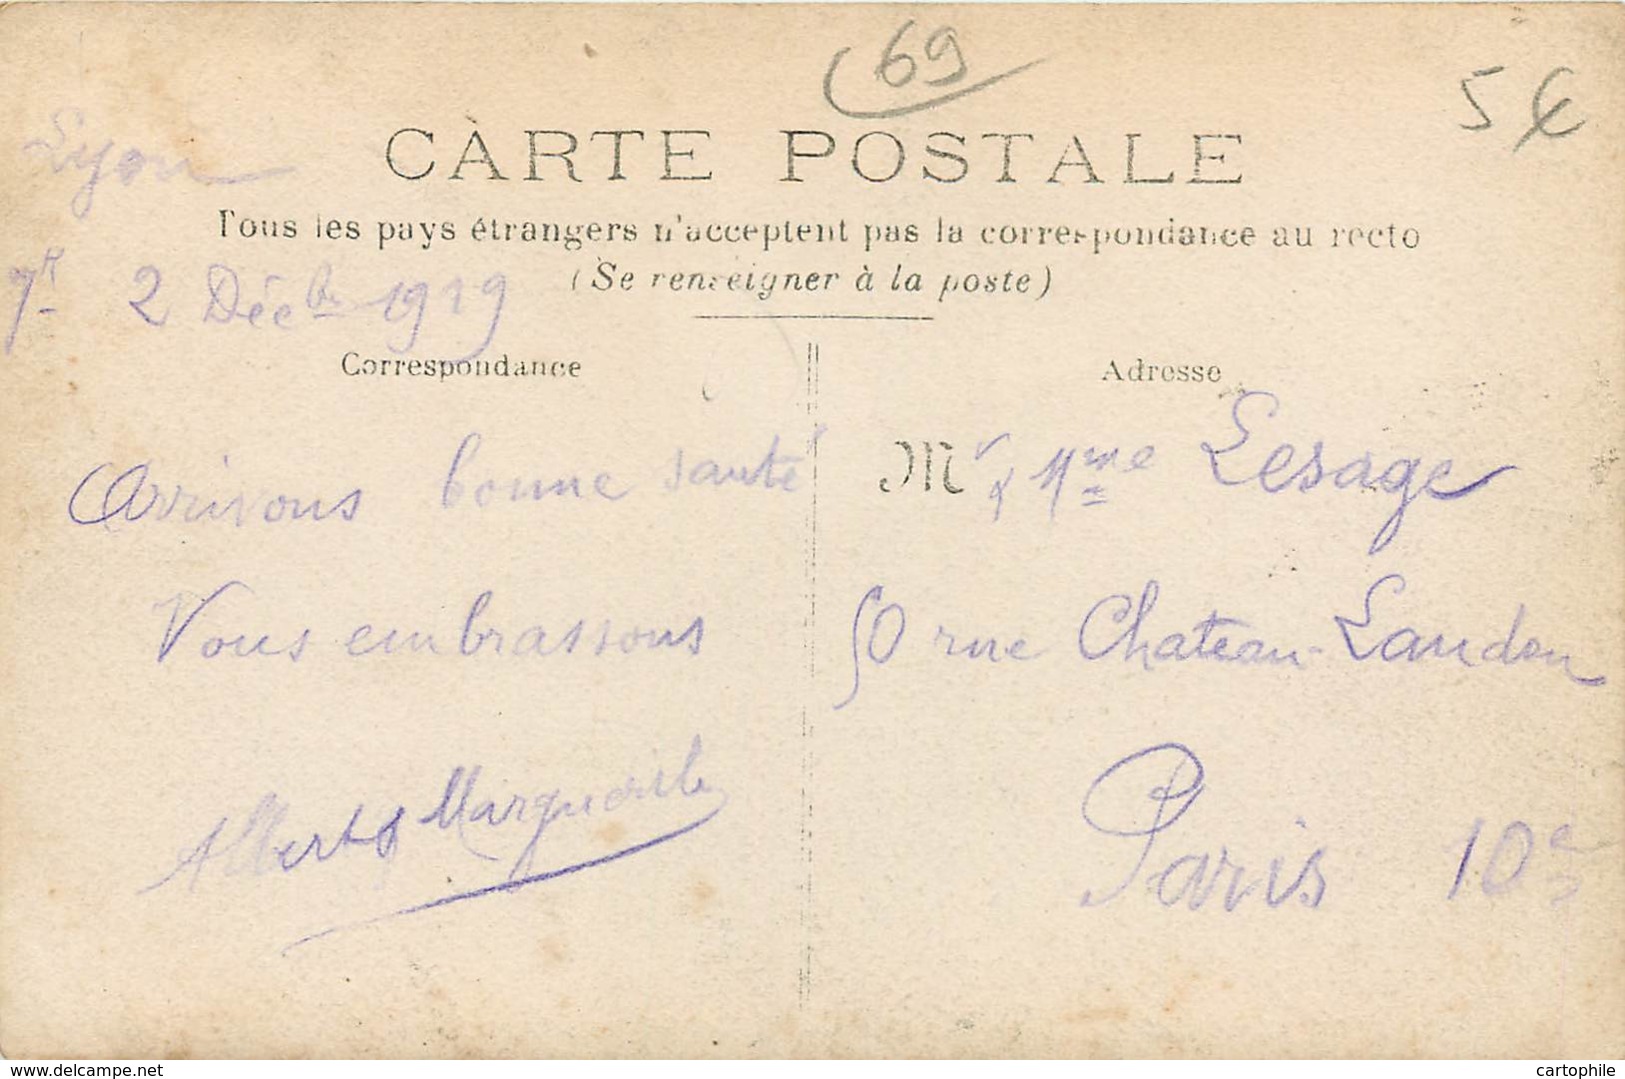 69
5 €
Lyon
CARTE POSTALE
Tous les pays étrangers n'acceptent pas la correspondance au recto
(Se renseigner à la poste)
2 Déc^bre 1919
Correspondance
Adresse
Arrivons bonne santé
Vous embrassons
Albert & Marguerite
M^r & M^me Lesage
50 rue Chateau-Landon
Paris 10^e
www.delcampe.net
cartophile